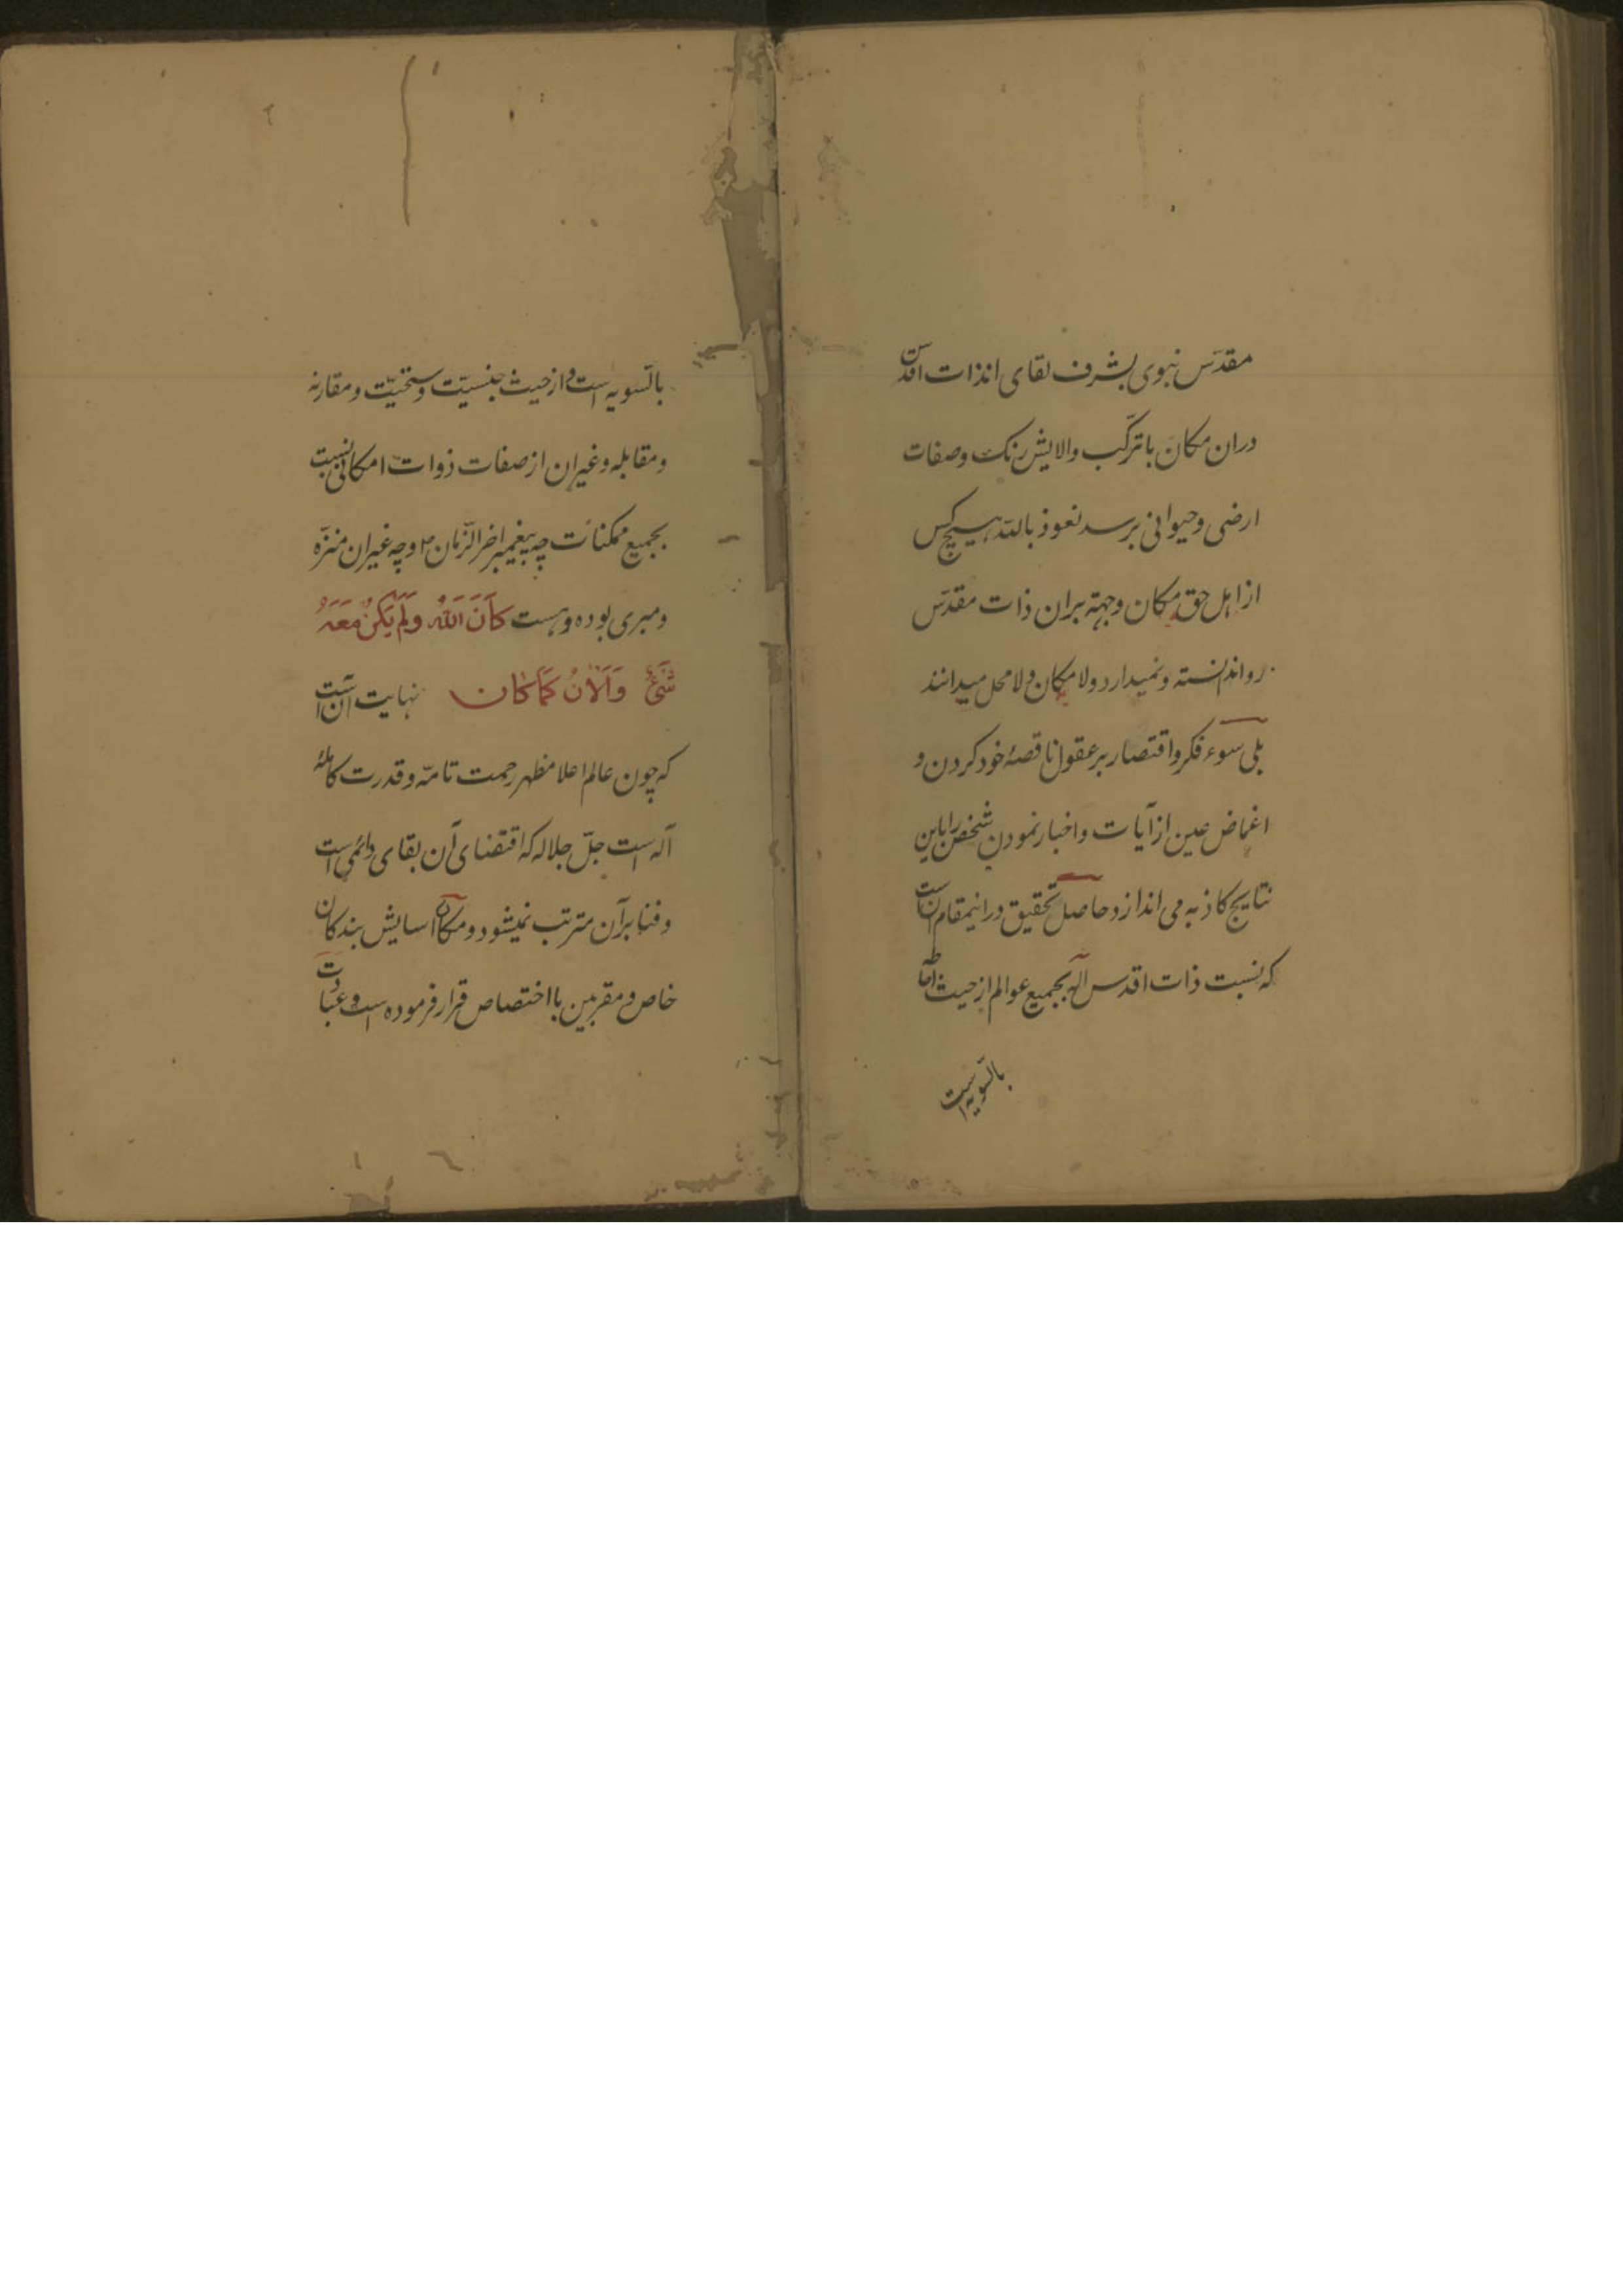 مقدّس نبوی بشرف لقای انذات اقدس
دران مکان با ترکّب والایش رنک وصفات
ارضی وحیوانی برسد نعوذ باللّه هیچکس
از اهل حق مکان وجهة بران ذات مقدّس
روا ندانسته ونمیدارد ولا مکان ولا محل میدانند
بلی سوء فکر واقتصار بر عقول ناقصهٔ خود کردن و
اغماض عین از آیات واخبار نمودن شخص را باین
نتایج کاذبه می اندازد حاصل تحقیق درانیمقام انست
که نسبت ذات اقدس اله بجمیع عوالم از حیث احاطه
بالسّویه است
بالسّویه است و از حیث جنسیّت وسنخیّت ومقارنه
ومقابله وغیران از صفات ذوات امکانی نسبت
بجمیع ممکنات چه پیغمبر اخر الزّمان ص وچه غیران منزّه
ومبری بوده وهست کَانَ اللّهُ وَلَم یَکُن مَعَهُ
شَیْءٌ وَالآنُ کَمَا کَان نهایت آن است
که چون عالم اعلا مظهر رحمت تامّه وقدرت کاملهٔ
آله است جلّ جلاله که اقتضای آن بقای دائمی است
وفنا بر آن مترتب نمیشود ومکان آسایش بندکان
خاص ومقربین با اختصاص قرار فرموده است وعبادت